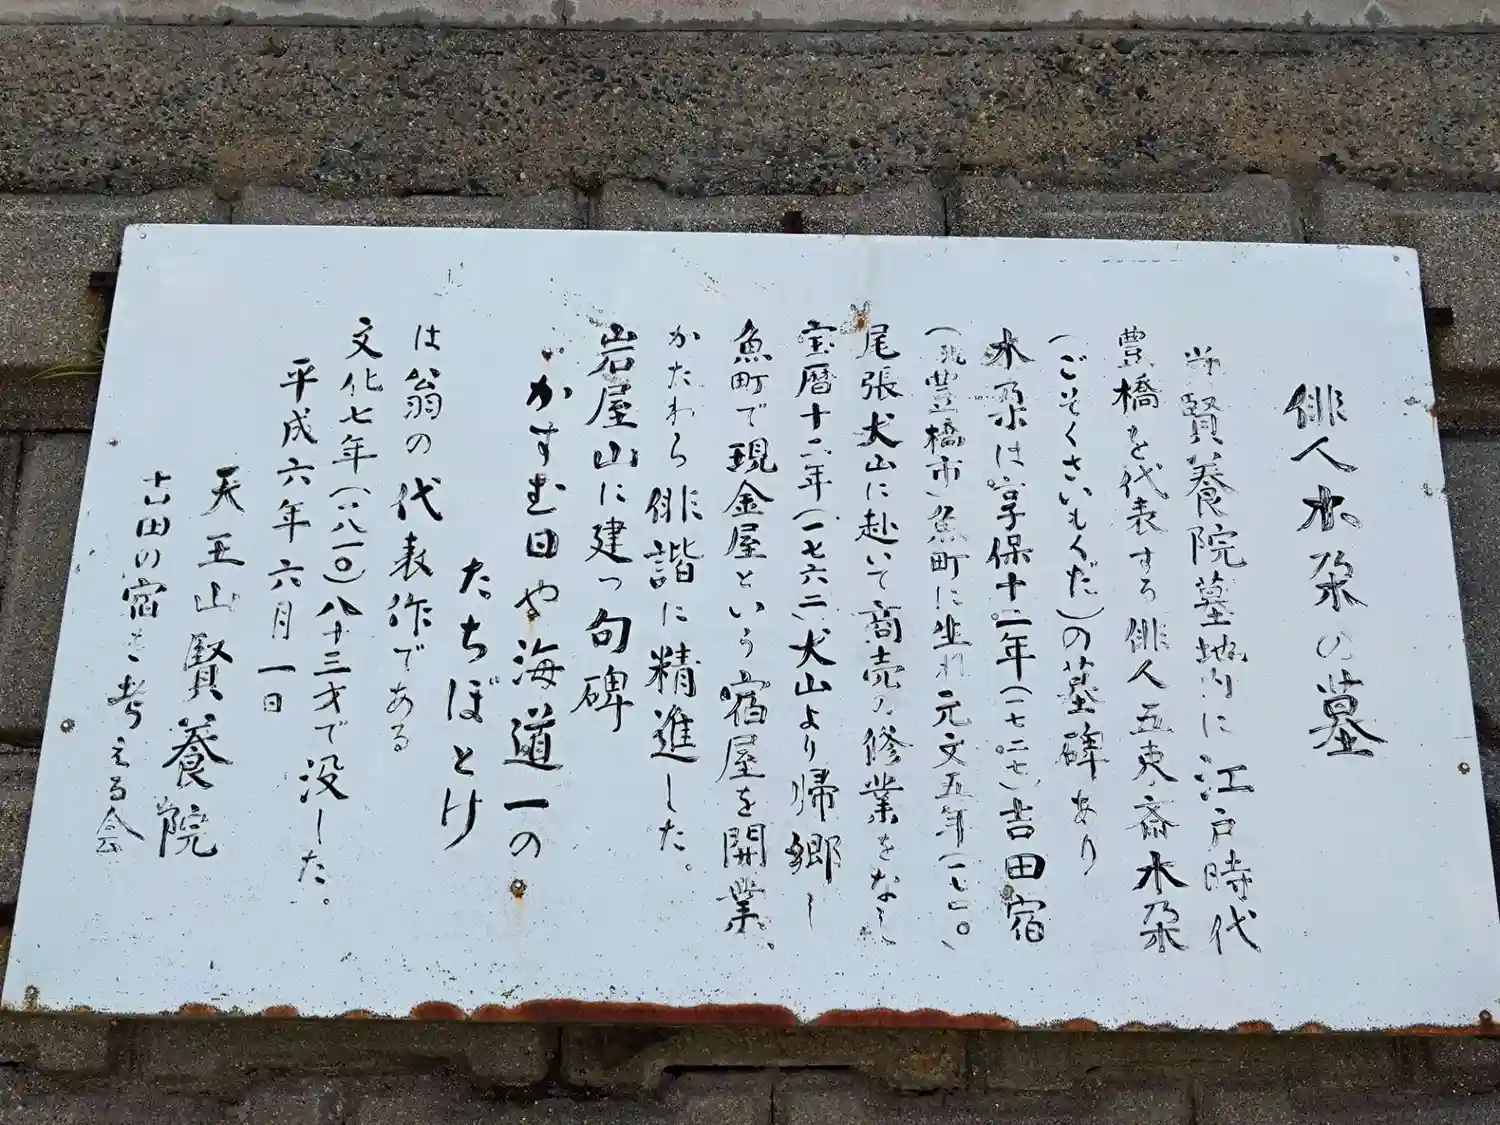 俳人木朶の墓
当賢養院墓地内に江戸時代
豊橋を代表する俳人五束斎木朶
(ごそくさいもくだ)の墓碑あり
木朶は享保十二年(一七二七)吉田宿
(現豊橋市)魚町に生れ元文五年(一七四〇)
尾張犬山に赴いて商売の修業をなし
宝暦十二年(一七六二)犬山より帰郷し
魚町で現金屋という宿屋を開業、
かたわら俳諧に精進した。
岩屋山に建つ句碑
かすむ日や海道一の
たちぼとけ
は翁の代表作である
文化七年(一八一〇)八十三才で没した。
平成六年六月一日
天王山賢養院
吉田の宿を考える会